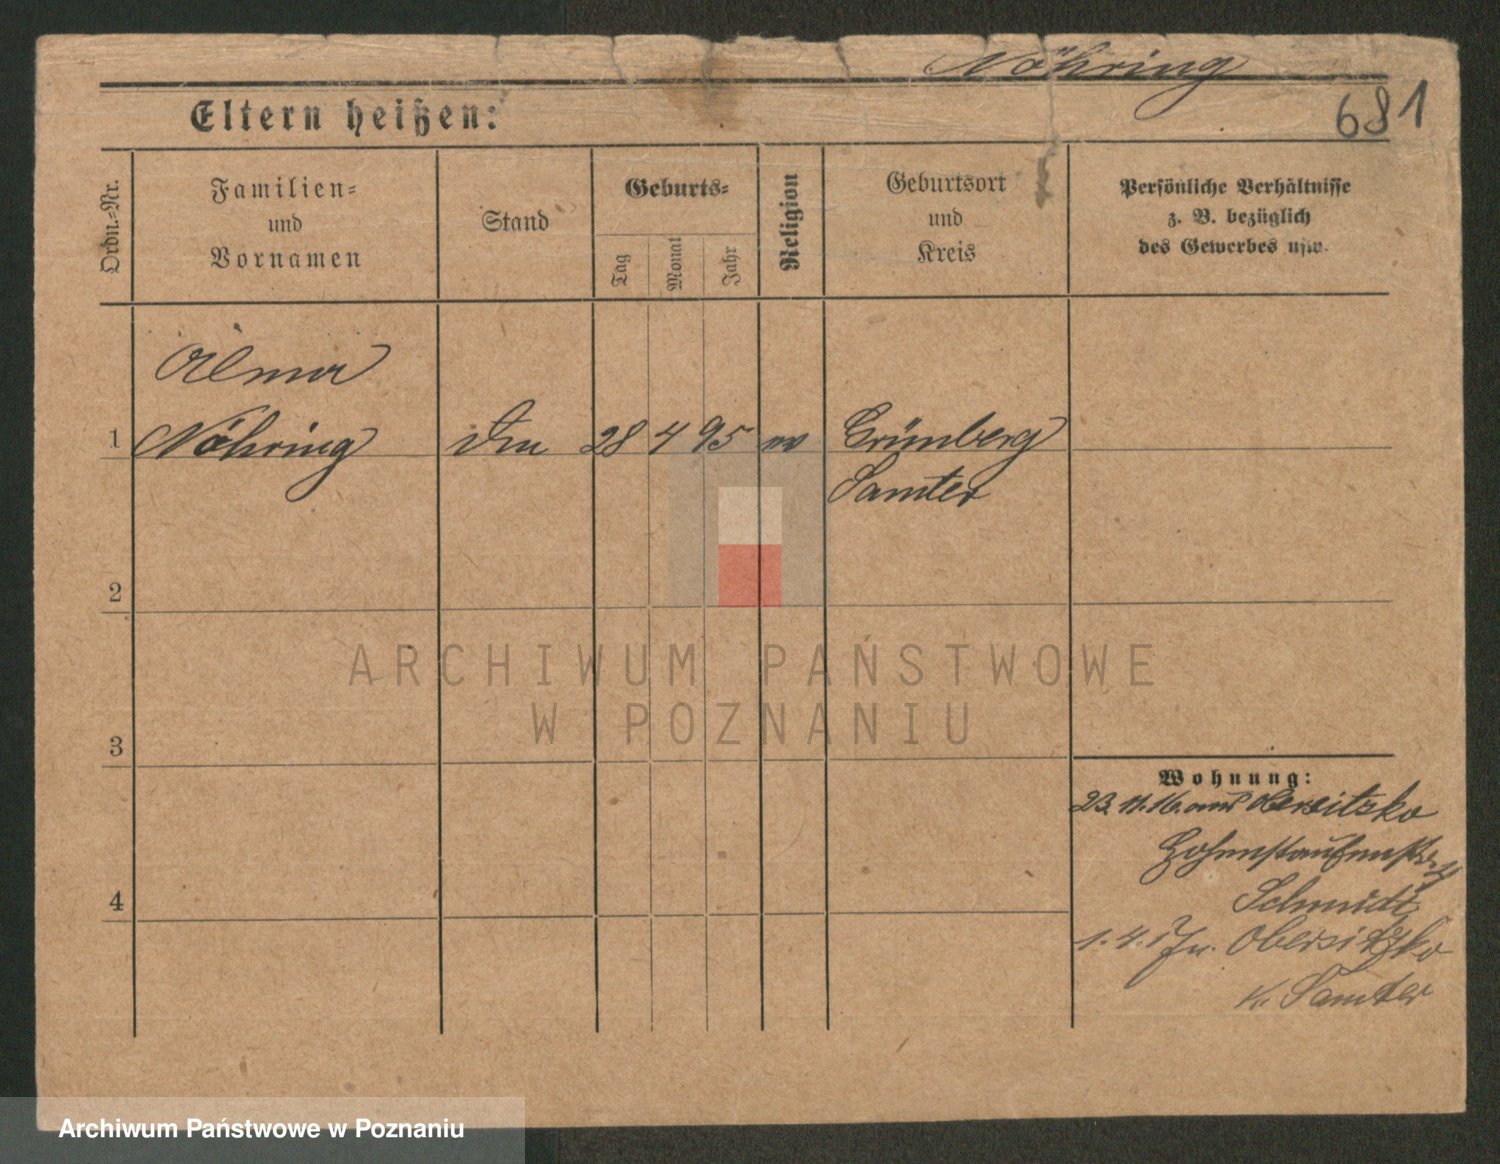 Nöhring
681
Eltern heißen:
Ordn.-Nr.
Familien-
und
Vornamen
Stand
Geburts-
Tag
Monat
Jahr
Religion
Geburtsort
und
Kreis
Persönliche Verhältnisse
z. B. bezüglich
des Gewerbes usw.
Alma
1 Nöhring 28 4 95 Grünberg
Samter
2
3
4
Wohnung:
23. 11. 16. aus Obersitzko
Hohenstaufenstr.
Schmidt
1. 4. 17 n. Obersitzko
K. Samter
ARCHIWUM PAŃSTWOWE
W POZNANIU
Archiwum Państwowe w Poznaniu